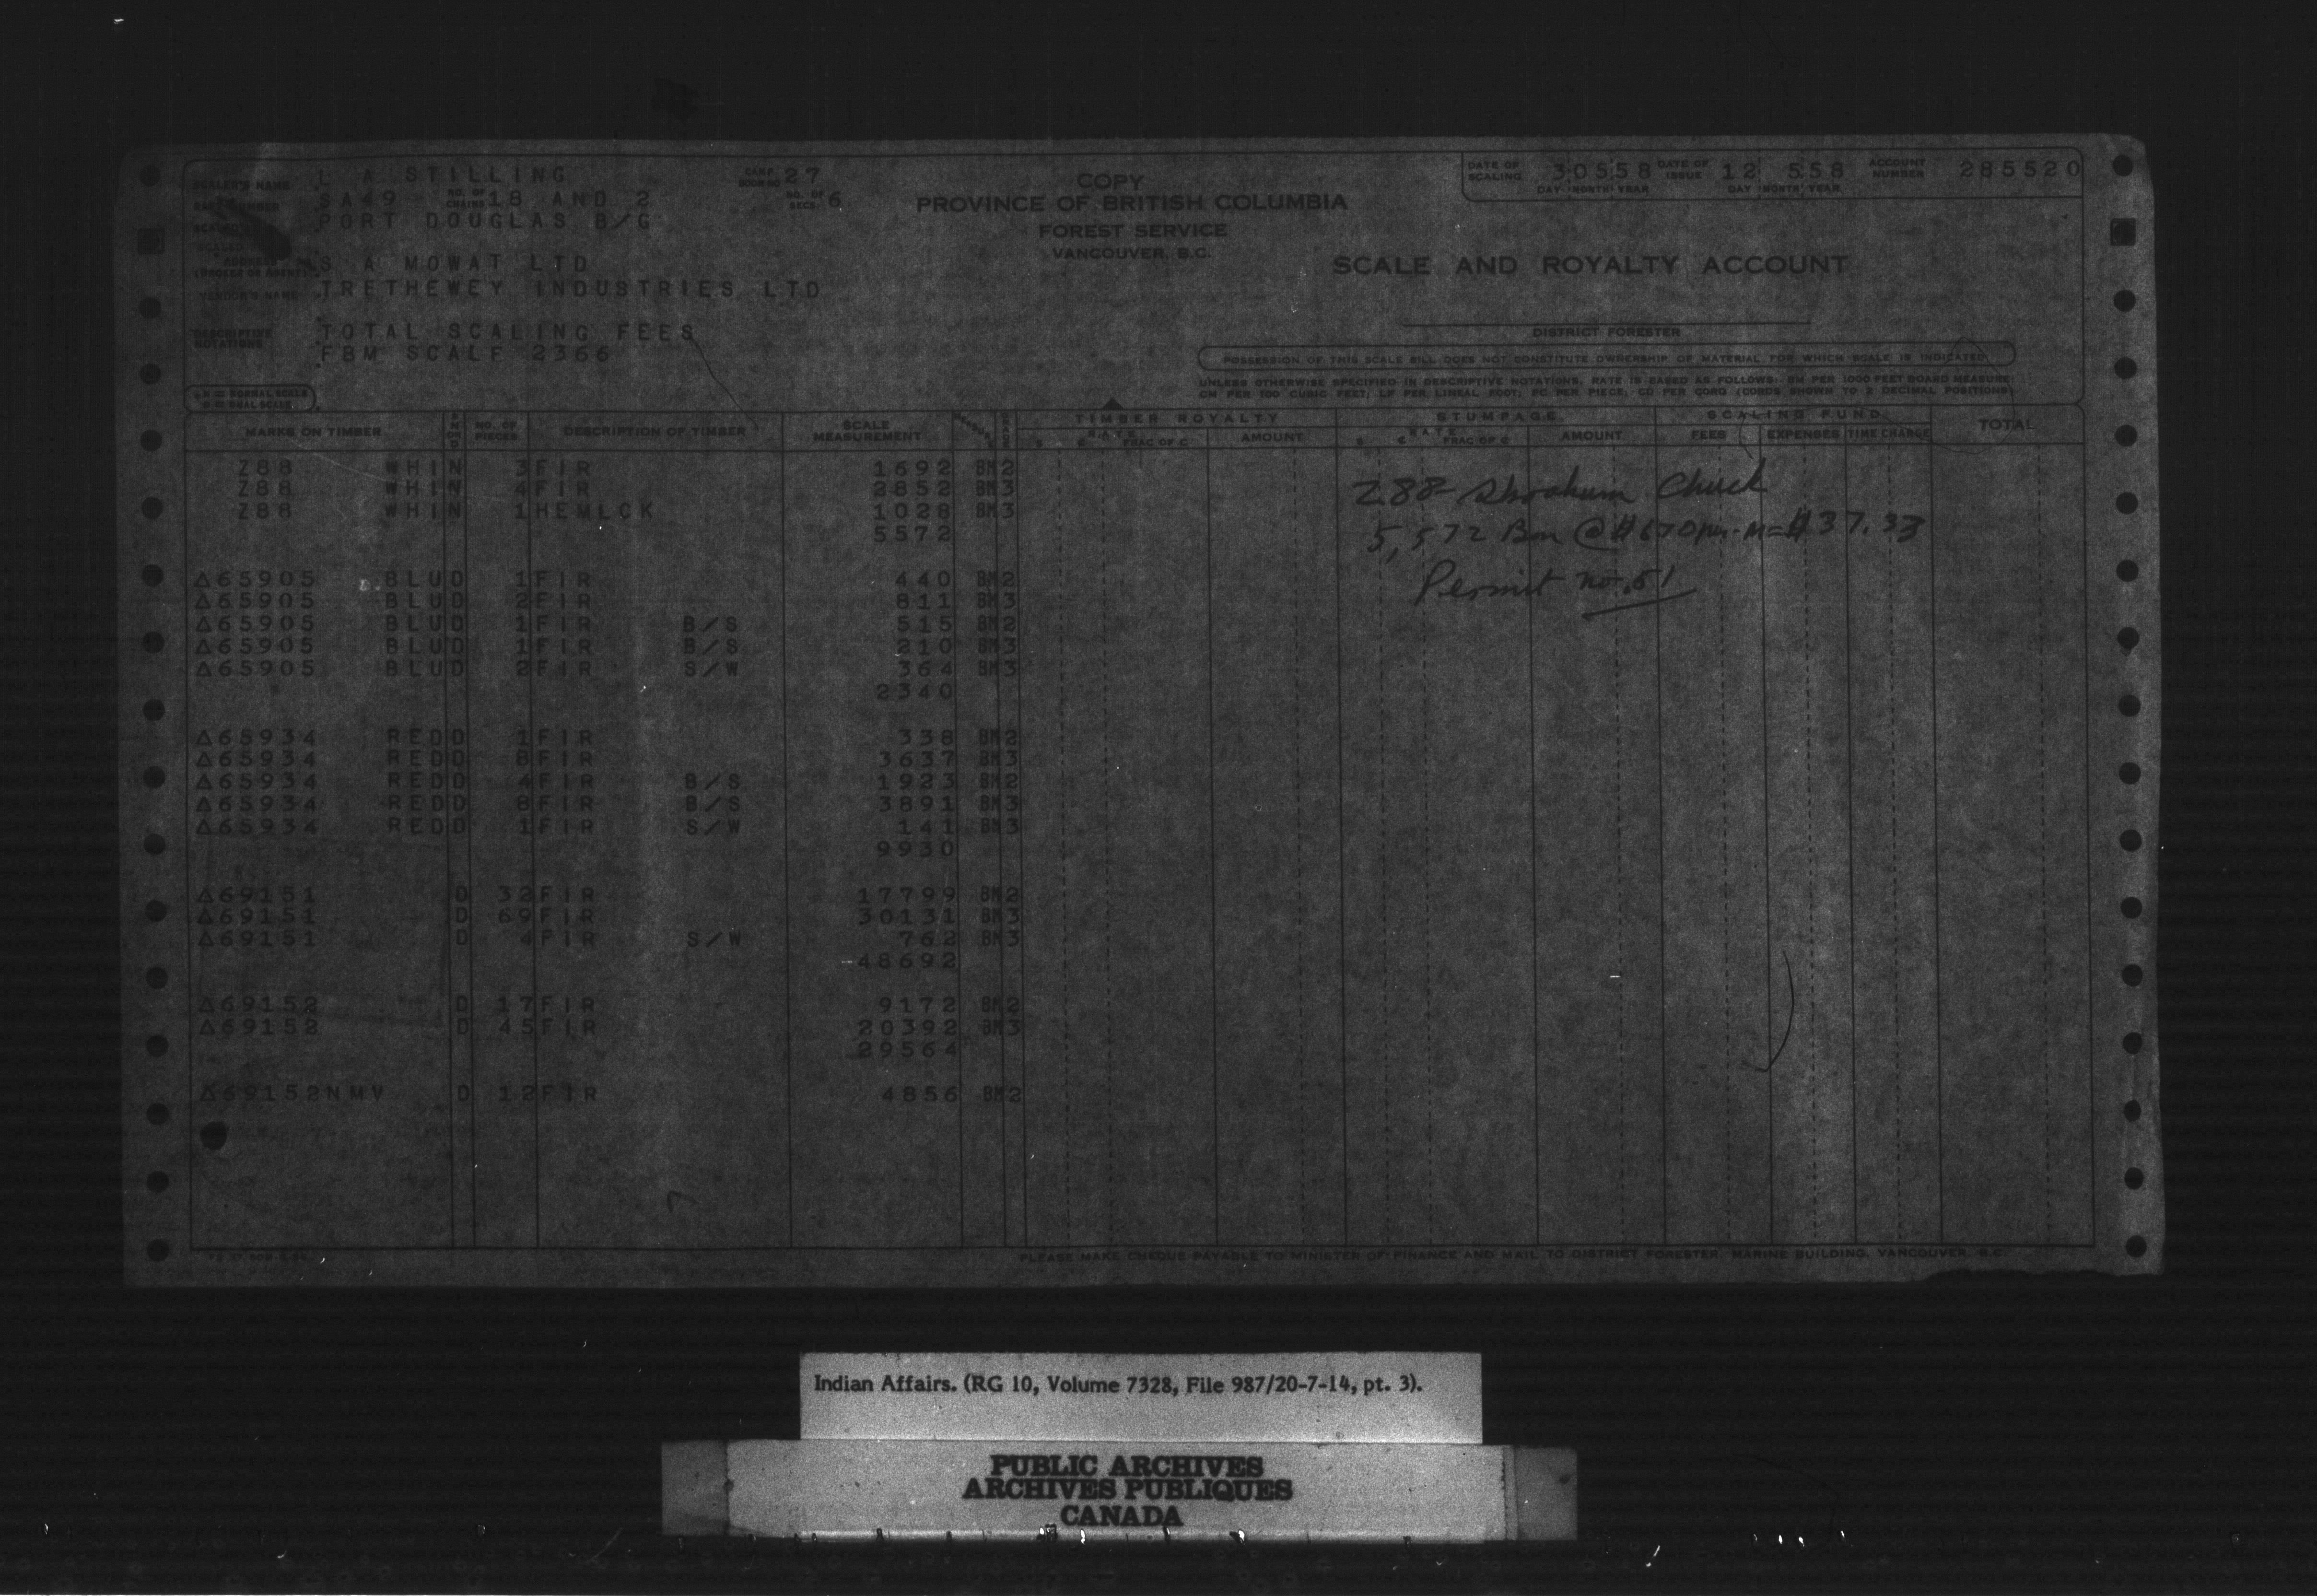 SCALER'S NAME L A STILLING CAMP BOOM NO 27
SA49 NO. OF CHAINS 18 AND 2 NO. OF SECS 6
PORT DOUGLAS B/G
ADDRESS (BROKER OR AGENT) S A MOWAT LTD
VENDOR'S NAME TRETHEWEY INDUSTRIES LTD
DESCRIPTIVE NOTATIONS TOTAL SCALING FEES
FBM SCALE 2366
N = NORMAL SCALE
D = DUAL SCALE
COPY
PROVINCE OF BRITISH COLUMBIA
FOREST SERVICE
VANCOUVER, B.C.
DATE OF SCALING 30 5 58 DATE OF ISSUE 12 5 58 ACCOUNT NUMBER 285520
DAY MONTH YEAR DAY MONTH YEAR
SCALE AND ROYALTY ACCOUNT
DISTRICT FORESTER
POSSESSION OF THIS SCALE BILL DOES NOT CONSTITUTE OWNERSHIP OF MATERIAL FOR WHICH SCALE IS INDICATED
UNLESS OTHERWISE SPECIFIED IN DESCRIPTIVE NOTATIONS, RATE IS BASED AS FOLLOWS: BM PER 1000 FEET BOARD MEASURE;
CM PER 100 CUBIC FEET; LF PER LINEAL FOOT; PC PER PIECE; CD PER CORD (CORDS SHOWN TO 2 DECIMAL POSITIONS)
MARKS ON TIMBER N OR D NO. OF PIECES DESCRIPTION OF TIMBER SCALE MEASUREMENT TIMBER ROYALTY STUMPAGE SCALING FUND TOTAL
$ RATE ¢ FRAC OF ¢ AMOUNT $ RATE ¢ FRAC OF ¢ AMOUNT FEES EXPENSES TIME CHARGE
Z88 WHI N 3 FIR 1692 BM 2
Z88 WHI N 4 FIR 2852 BM 3
Z88 WHI N 1 HEMLCK 1028 BM 3
5572
Z88- Abraham Chuck
5,572 Bm @ $6 70 per M = $37.33
Permit no. 51
△65905 BLU D 1 FIR 440 BM 2
△65905 BLU D 2 FIR 811 BM 3
△65905 BLU D 1 FIR B/S 515 BM 2
△65905 BLU D 1 FIR B/S 210 BM 3
△65905 BLU D 2 FIR S/W 364 BM 3
2340
△65934 RED D 1 FIR 338 BM 2
△65934 RED D 8 FIR 3637 BM 3
△65934 RED D 4 FIR B/S 1923 BM 2
△65934 RED D 8 FIR B/S 3891 BM 3
△65934 RED D 1 FIR S/W 141 BM 3
9930
△69151 D 32 FIR 17799 BM 2
△69151 D 69 FIR 30131 BM 3
△69151 D 4 FIR S/W 762 BM 3
48692
△69152 D 17 FIR 9172 BM 2
△69152 D 45 FIR 20392 BM 3
29564
△69152NMV D 12 FIR 4856 BM 2
PLEASE MAKE CHEQUE PAYABLE TO MINISTER OF FINANCE AND MAIL TO DISTRICT FORESTER, MARINE BUILDING, VANCOUVER, B.C.
Indian Affairs. (RG 10, Volume 7328, File 987/20-7-14, pt. 3).
PUBLIC ARCHIVES
ARCHIVES PUBLIQUES
CANADA